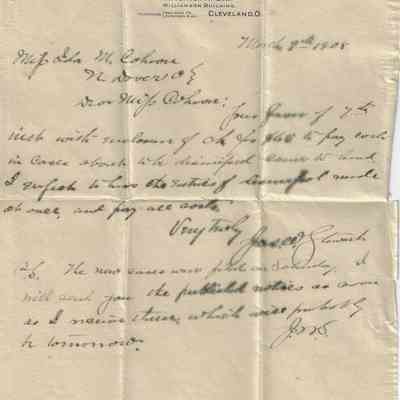 WILLIAMSON BUILDING.
CLEVELAND, O.
March 9th 1908
Miss Ida M. Cahoon
N. Dover O
Dear Miss Cahoon:
Your favor of 7th
inst with enclosure of ck for to pay costs
in cases about to be dismissed came to hand
I will the entries of made
at once, and pay all costs.
Very truly
P.S. The new cases were filed on Saturday. I
will send you the published notices as soon
as I receive them, which will probably
be tomorrow.